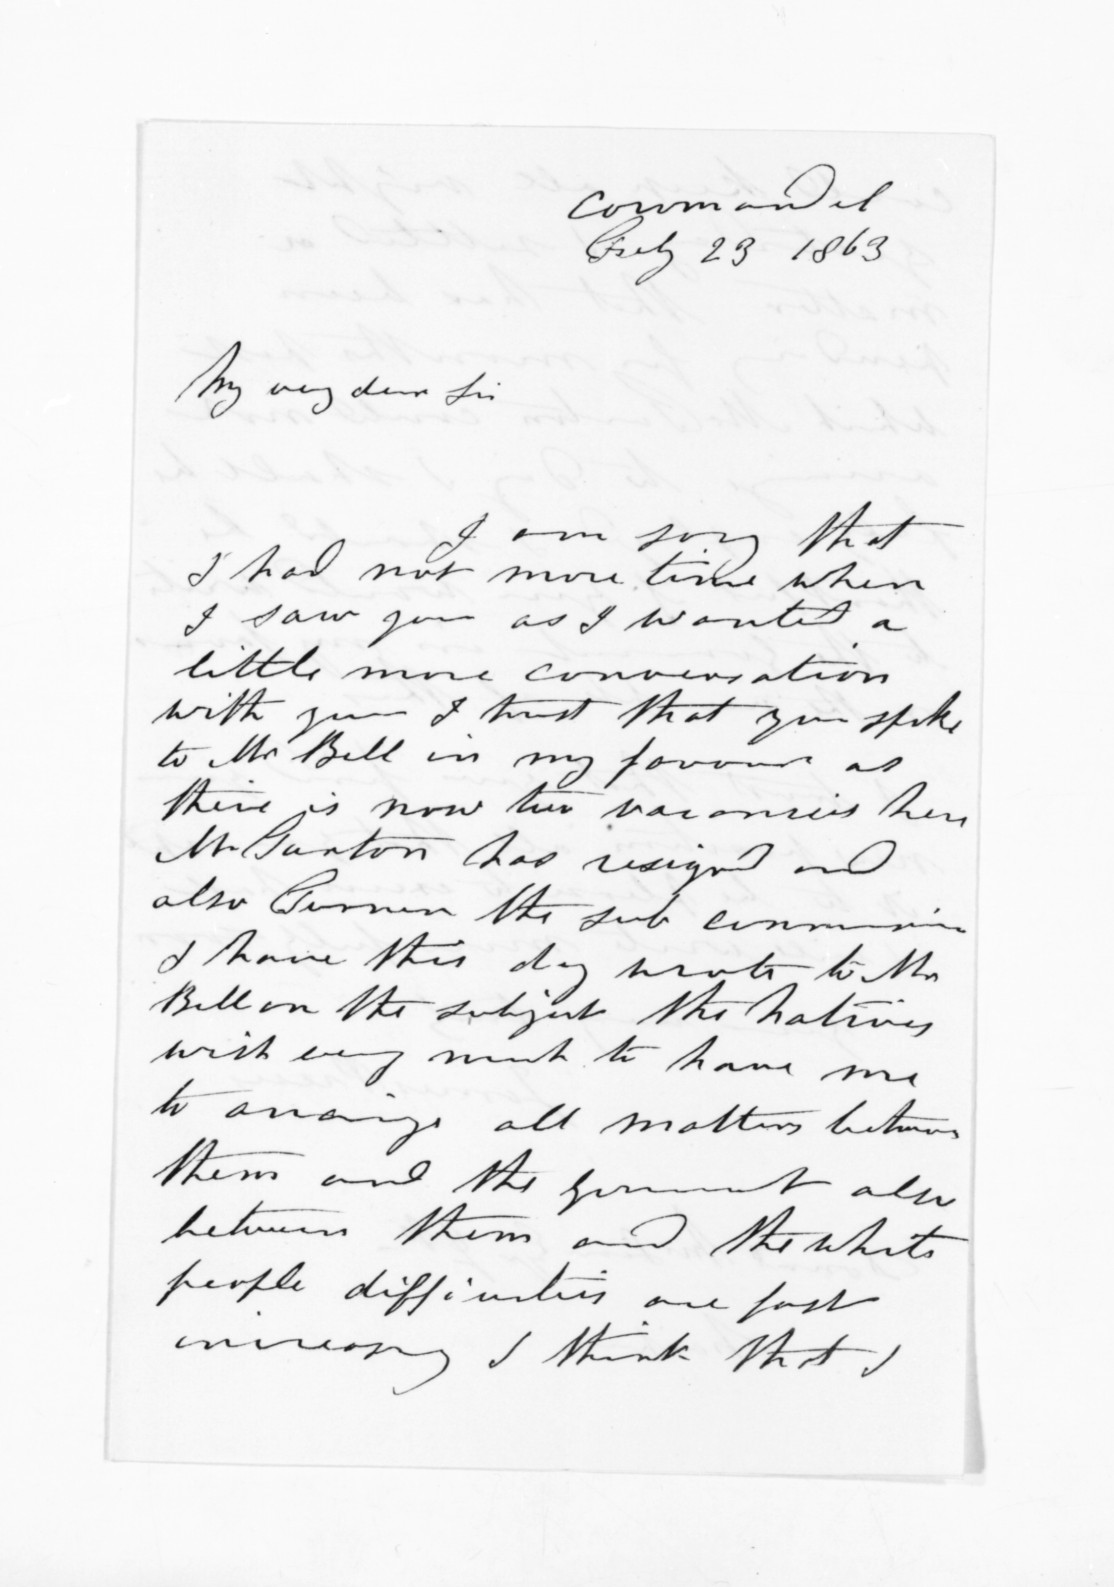 Cowmandel
Feby 23 1863
My very dear Sir
I am sory that
I had not more time when
I saw you as I wanted a
little more conversation
with you I trust that you spoke
to Mr Bell in my favour as
there is now two vacancies here
Mr Turton has resigned and
also Turner the sub
I have this day wrote to Mr
Bell on the subject the Natives
wish very much to have me
to arrainge all matters between
them and the Government also
between them and the white
people difficulties are fast
increasing I think that I